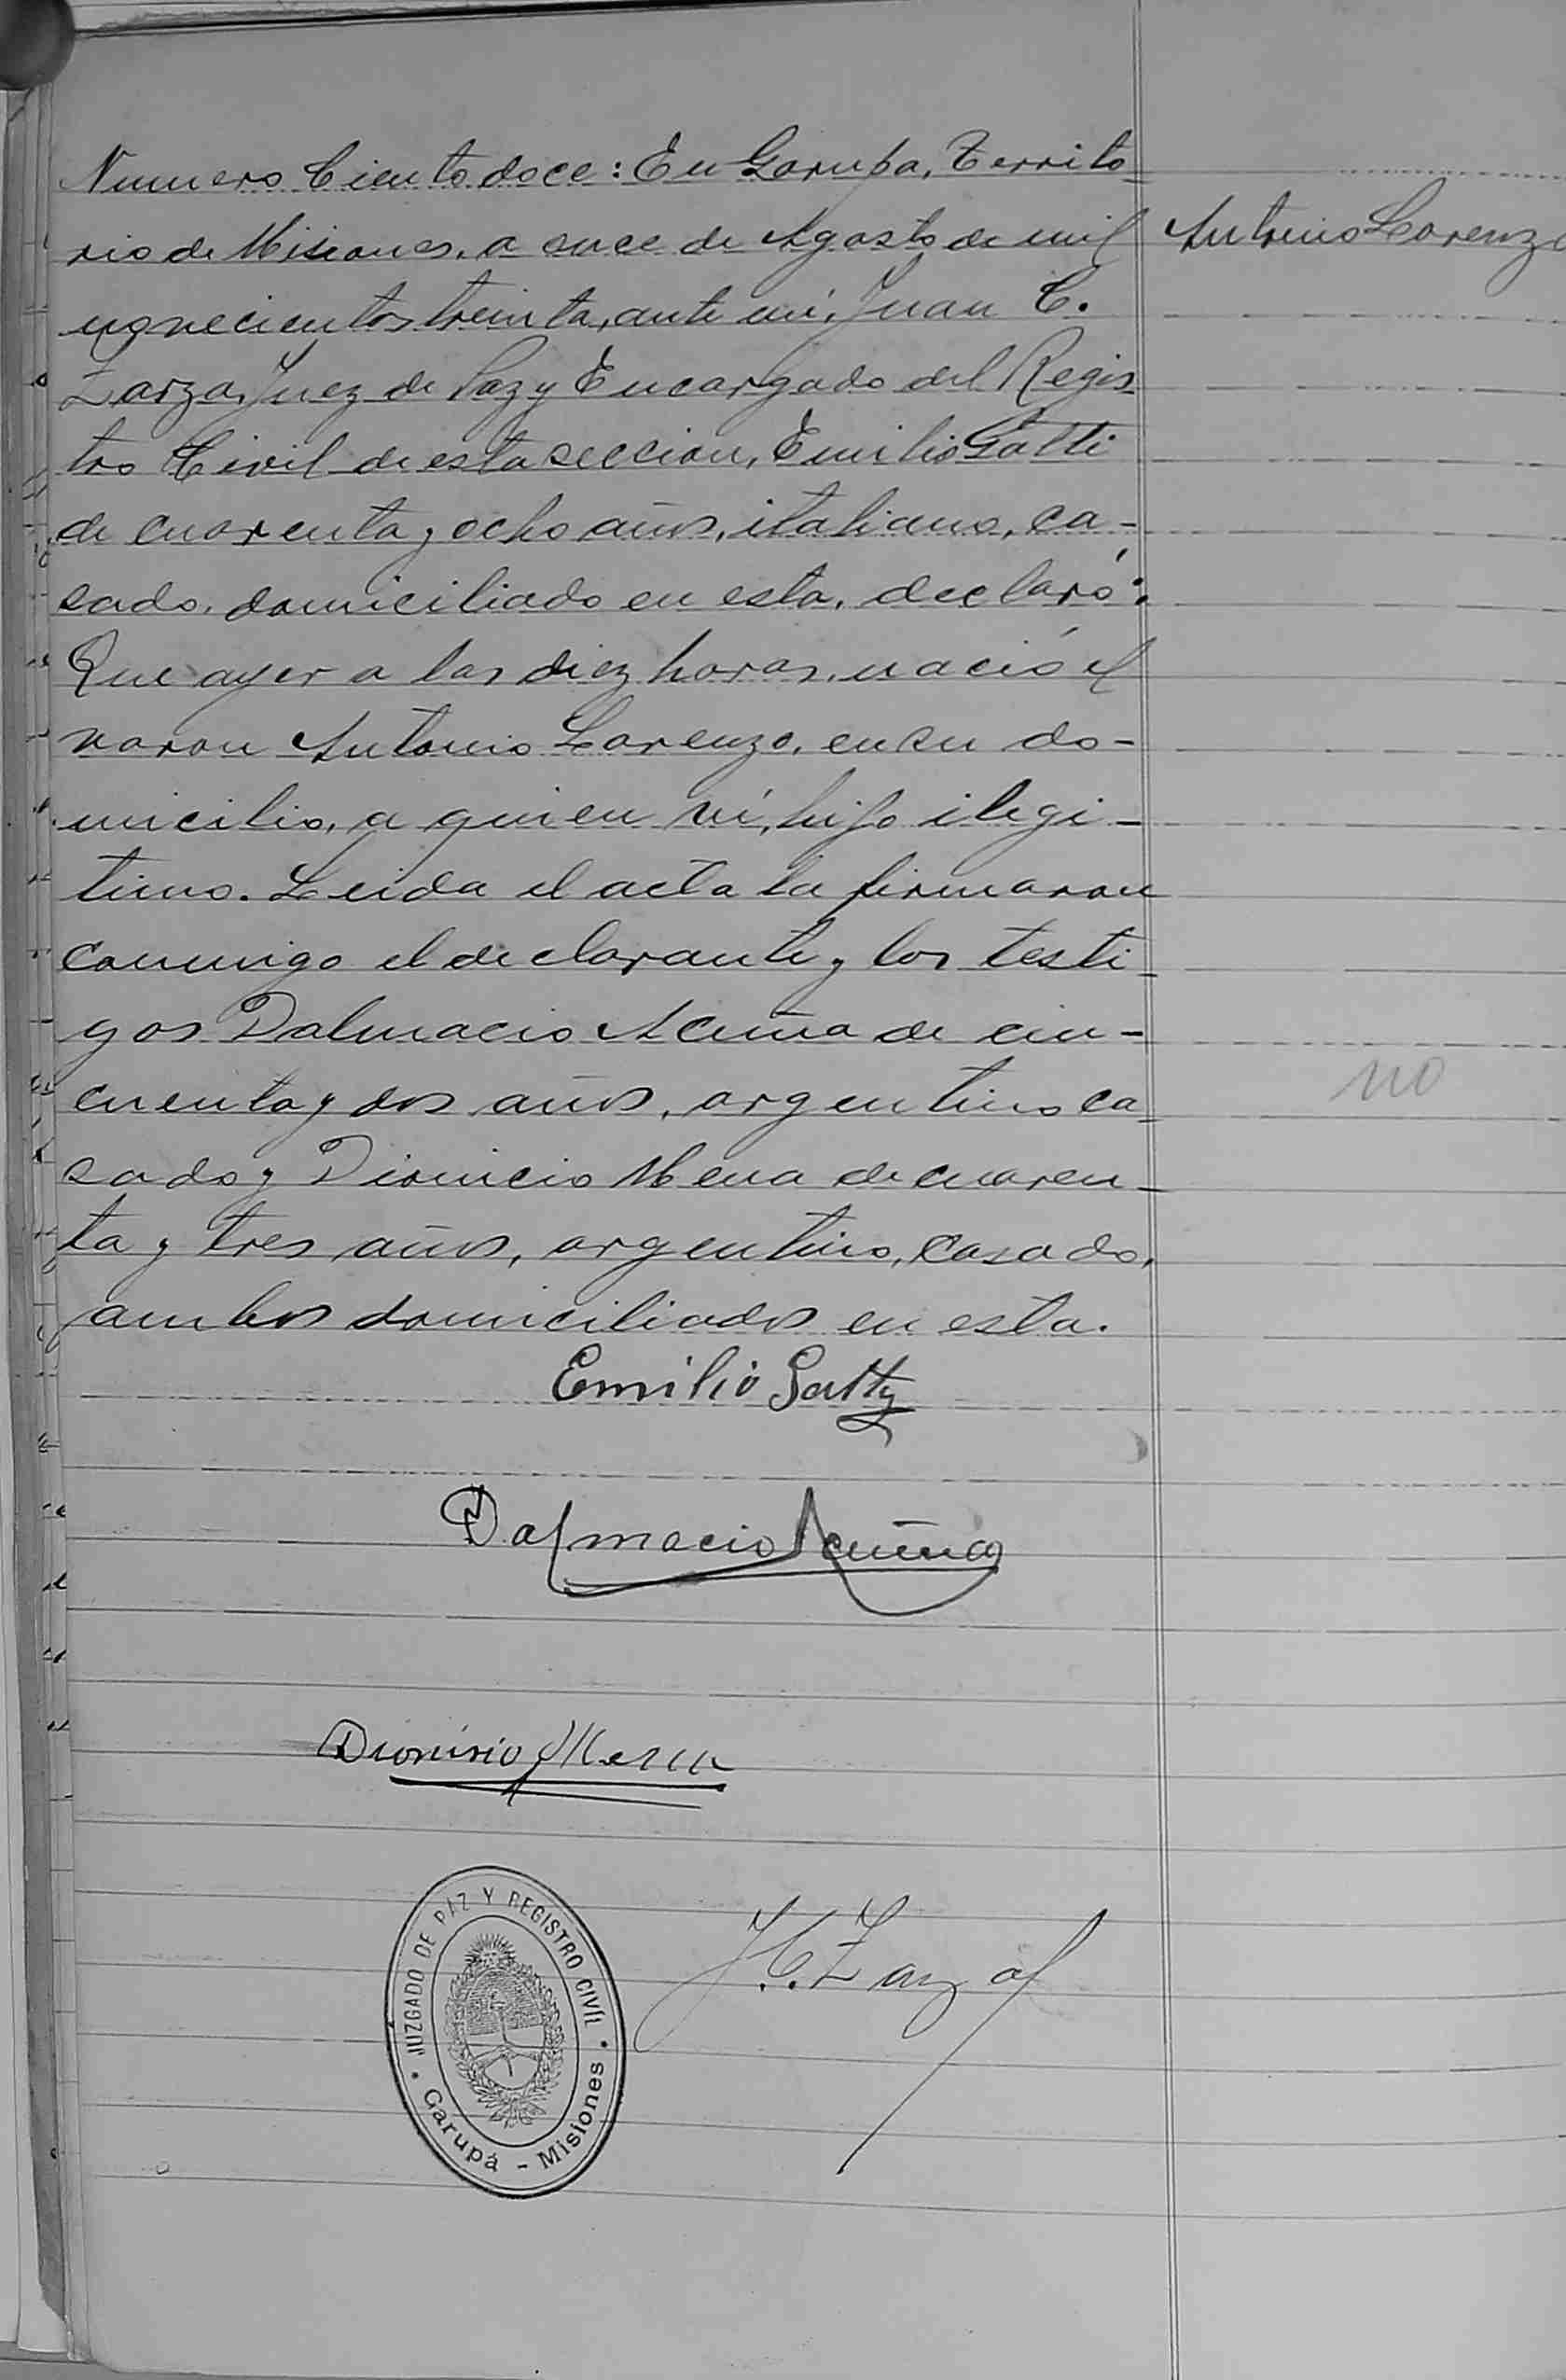 Numero Ciento doce: En Garupa, Territo
rio de Misiones, a once de Agosto de mil
Antonio Lorenzo
novecientos treinta, ante mí, Juan C.
Zarza, Juez de Paz y Encargado del Regis
tro Civil de esta seccion, Emilio Gatti
de cuarenta y ocho años, italiano, ca-
sado, domiciliado en esta, declaró:
Que ayer a las diez horas, nació el
varon Antonio Lorenzo, en su do-
micilio, a quien ví, hijo ilegi-
timo. Leida el acta la firmaron
conmigo el declarante y los testi-
gos Dalmacio Acuña de cin-
cuenta y dos años, argentino ca-
no
sado y Dionicio Mena de cuaren-
ta y tres años, argentino, casado,
ambos domiciliados en esta.
Emilio Gatty
Dalmacio Acuña
Dionisio Mena
J. C. Zarza
JUZGADO DE PAZ Y REGISTRO CIVIL
Garupá - Misiones